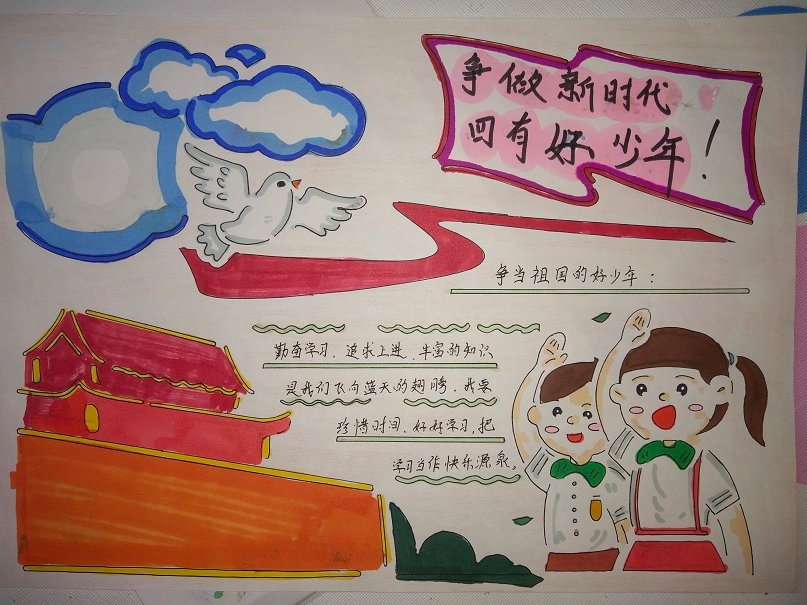 争做新时代
四有好少年！
争当祖国的好少年：
勤奋学习，追求上进，丰富的知识
是我们飞向蓝天的翅膀，我要
珍惜时间，好好学习，把
学习当作快乐源泉。